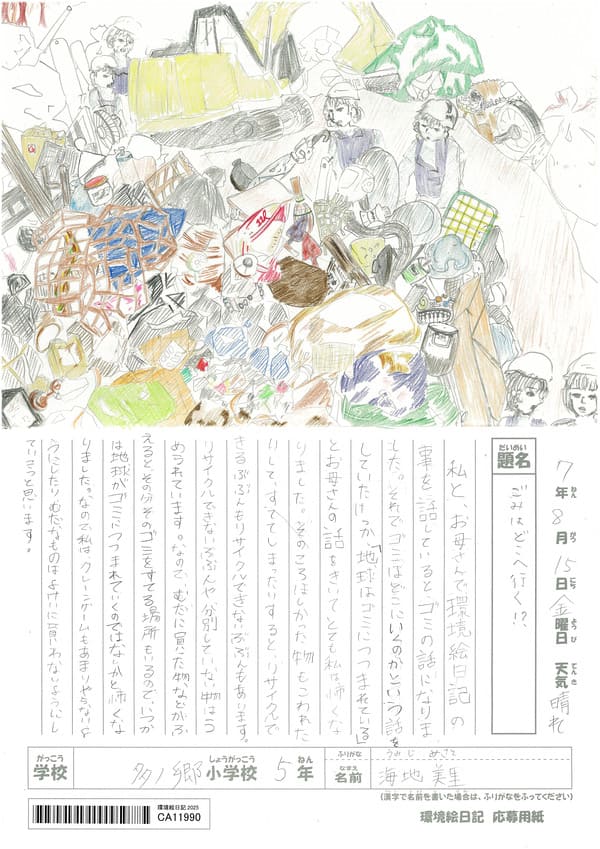 7年 8月 15日 金曜日 天気 晴れ
ねん がつ にち ようび てんき
だいめい
題名
ごみはどこへ行く!?
私と、お母さんで環境絵日記の
事を話していると、ゴミの話になりま
した。それでゴミはどこにいくのかという話を
していたけっか、「地球はゴミにつつまれている」
とお母さんの話をきいてとても私は怖くな
りました。そのころほしかった物もこわれた
りして、すててしまったりすると、リサイクルで
きるぶぶんもリサイクルできないぶぶんもあります。
リサイクルできないぶぶんや分別していない物はう
められています。なので、むだに買った物などがふ
えるとその分そのゴミをすてる場所もいるので、いつか
は地球がゴミにつつまれていくのではないかと怖くな
りました。なので私は、クレーンゲームもあまりやらないよ
うにしたりむだなものはよけいに買わないようにし
ていこうと思います。
がっこう しょうがっこう ねん ふりがな
学校 多ノ郷 小学校 5年 なまえ 名前 海地 美里
(漢字で名前を書いた場合は、ふりがなをふってください)
環境絵日記 2025
CA11990
環境絵日記 応募用紙